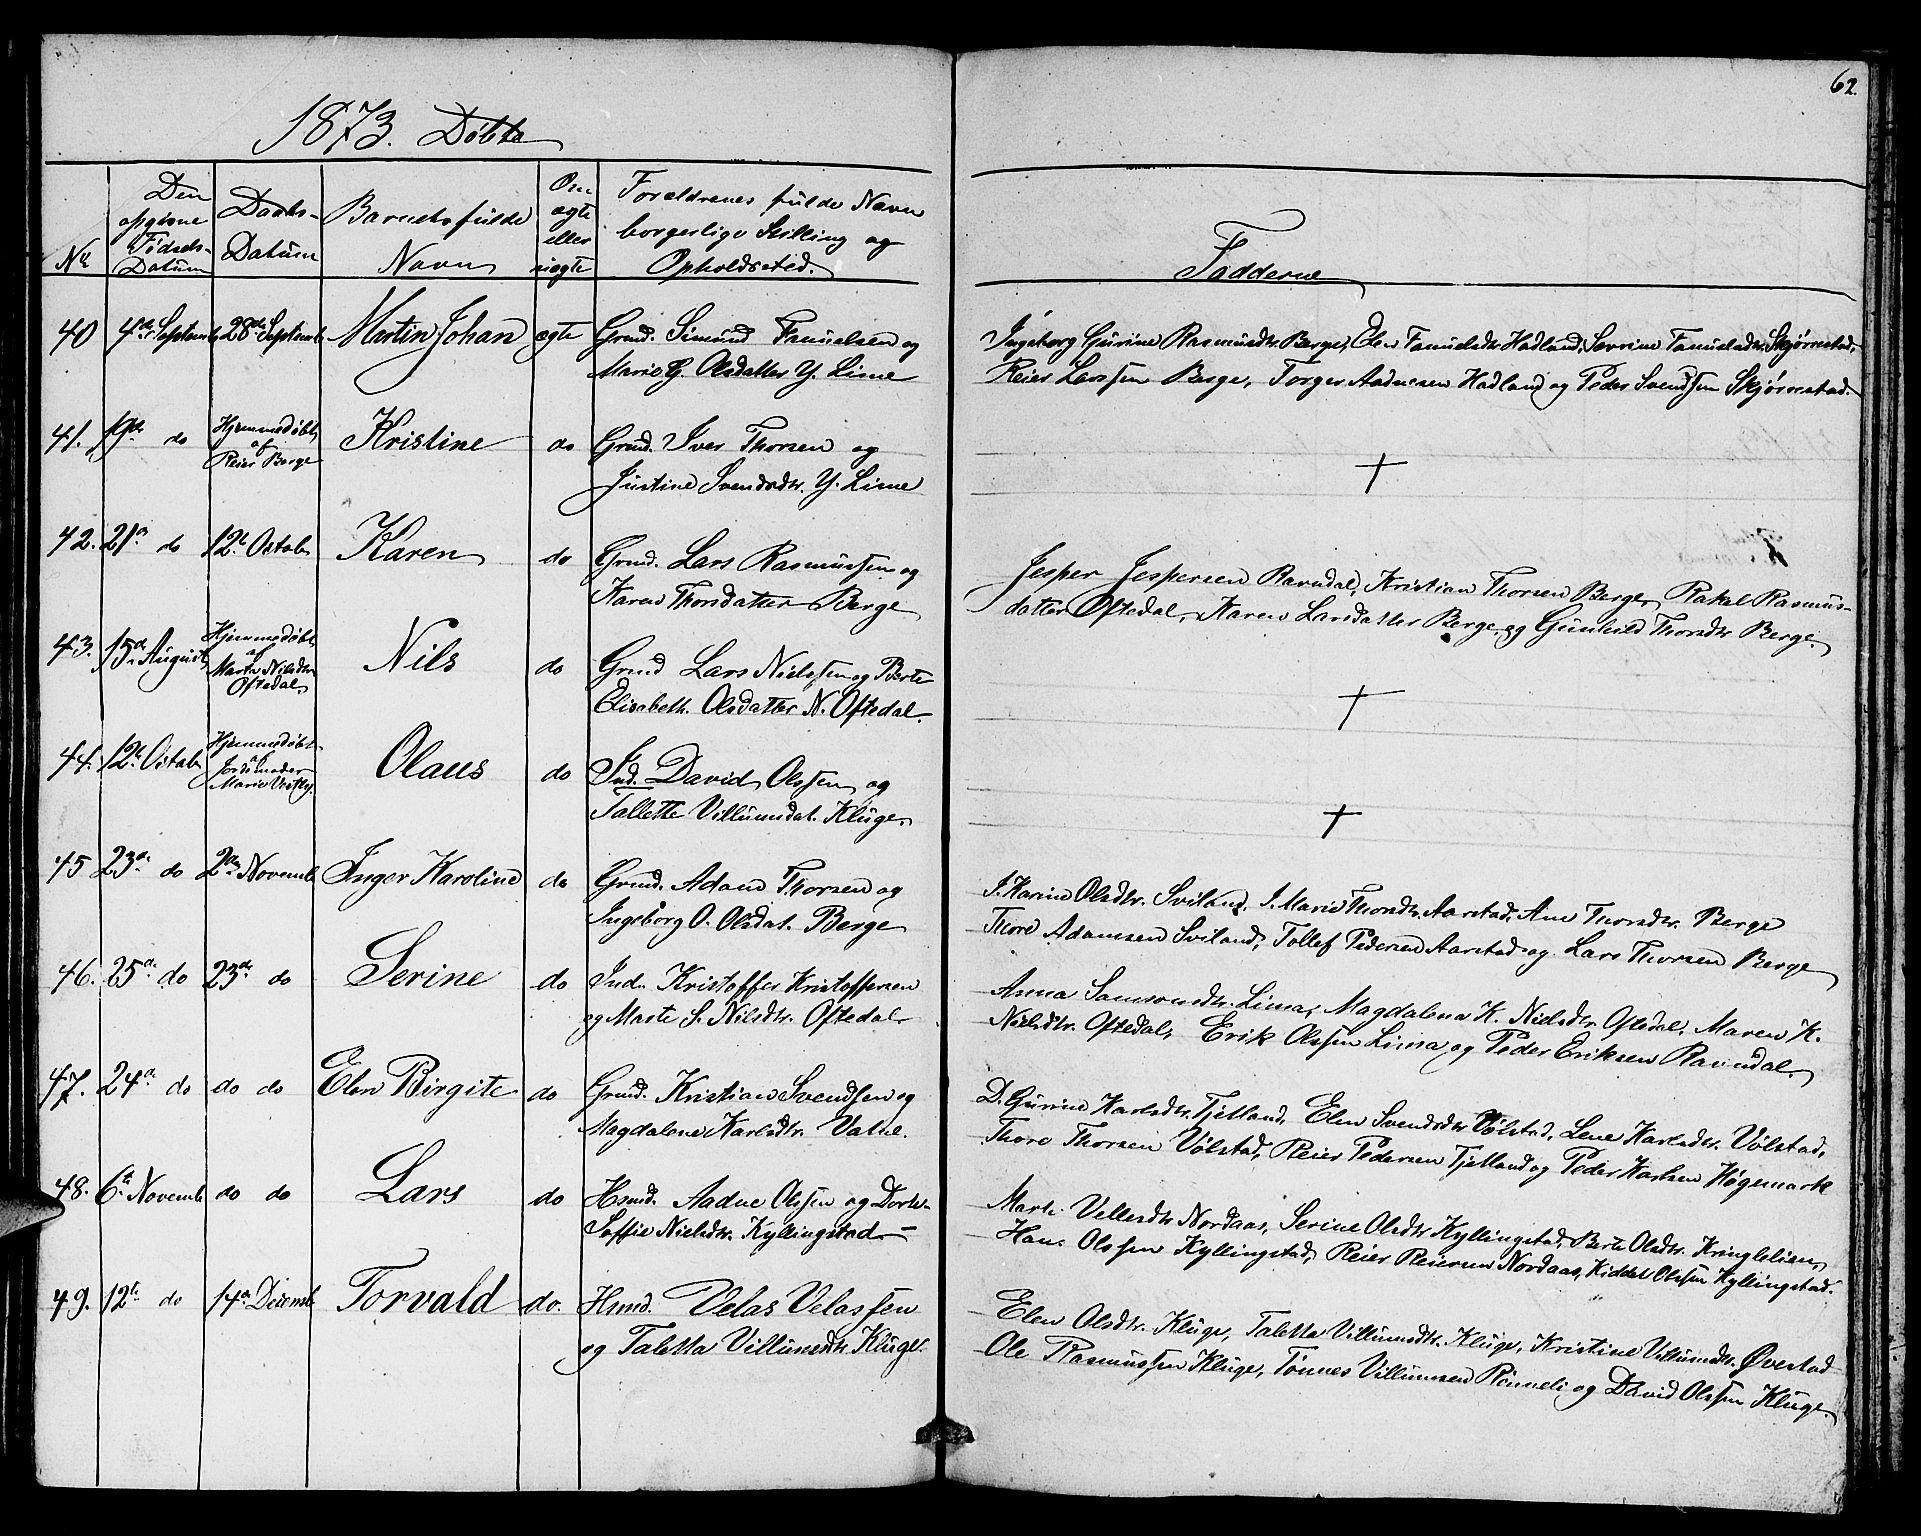 62.
1873. Døbte
No
Den opgivne Fødsels-Datum
Daabs-Datum
Barnets fulde Navn
Om ægte eller uægte
Forældrenes fulde Navn borgerlige Stilling og Opholdssted.
Fadderne
40 4de Septemb 28de Septemb Martin Johan ægte Grmd. Simund Tanuelsen og
Marie G. Olsdatter Y. Lime
Ingeborg Gurine Rasmusdtr Berge, Elen Fanuelsdtr Hadland, Sevrine Fanuelsdtr Skjørrestad,
Reier Larssen Berge, Torger Aadnesen Hadland og Peder Svendsen Skjørrestad.
41. 19de do Hjemmedøbt af Reier Berge Kristine do Grmd. Iver Thorsen og
Justine Svendsdtr. Y. Lime
+
42. 21de do 12te Octob Karen do Grmd. Lars Rasmussen og
Karen Thorsdatter Berge
Jesper Jespersen Ravndal, Kristian Thorsen Berge, Rakel Rasmus-
datter Oftedal, Karen Larsdatter Berge, og Gunhild Thorsdtr Berge.
43. 15de August Hjemmedøbt af Marte Nilsdtr Oftedal Nils do Grmd Lars Nielssen og Berte
Elisabeth. Olsdatter N. Oftedal.
+
44. 12te Octob Hjemmedøbt af Jordemoder Marie Vestly. Olaus do Ind. David Olssen og
Tallette Villumsdat. Kluge.
+
45 23de do 2den Novemb Inger Karoline do Grmd. Adam Thorsen og
Ingeborg O. Olsdat. Berge
I. Karine Olsdtr. Sviland, I. Marie Thorsdtr. Aarstad, Ane Thorsdtr. Berge
Thore Adamsen Sviland, Tollef Pedersen Aarstad og Lars Thorsen Berge
46. 25de do 23de do Serine do Ind. Kristoffer Kristoffersen
og Marte S. Nilsdtr. Oftedal
Anna Samsonsdtr. Lima, Magdalena K. Nielsdtr. Oftedal, Maren K.
Nielsdtr. Oftedal, Erik Olssen Lima og Peder Eriksen Ravndal.
47. 24de do do do Elen Birgite do Grmd. Kristian Svendsen og
Magdalene Karlsdtr. Vatne.
D. Gurine Karlsdtr. Tjetland, Elen Svendsdtr Vølstad, Lene Karlsdtr. Vølstad,
Thore Thorsen Vølstad, Reier Pedersen Tjetland og Peder Karlsen Høgemark
48. 6te Novemb do do Lars do Hsmd. Aadne Olssen og Dorte
Soffie Nielsdtr. Kyllingstad
Marte Vellesdtr Nordaas, Serine Olsdtr Kyllingstad, Berte Olsdtr. Kringlelien,
Hans Olssen Kyllingstad, Reier Reiersen Nordaas, Kiddel Olssen Kyllingstad.
49. 12te do 14de Decemb Torvald do. Hsmd. Velas Velassen
og Taletta Villumsdtr Kluge
Elen Olsdtr. Kluge, Taletta Villumsdtr. Kluge, Kristine Villumsdtr. Øvestad
Ole Rasmussen Kluge, Tønnes Villumsen Rønneli og David Olssen Kluge.